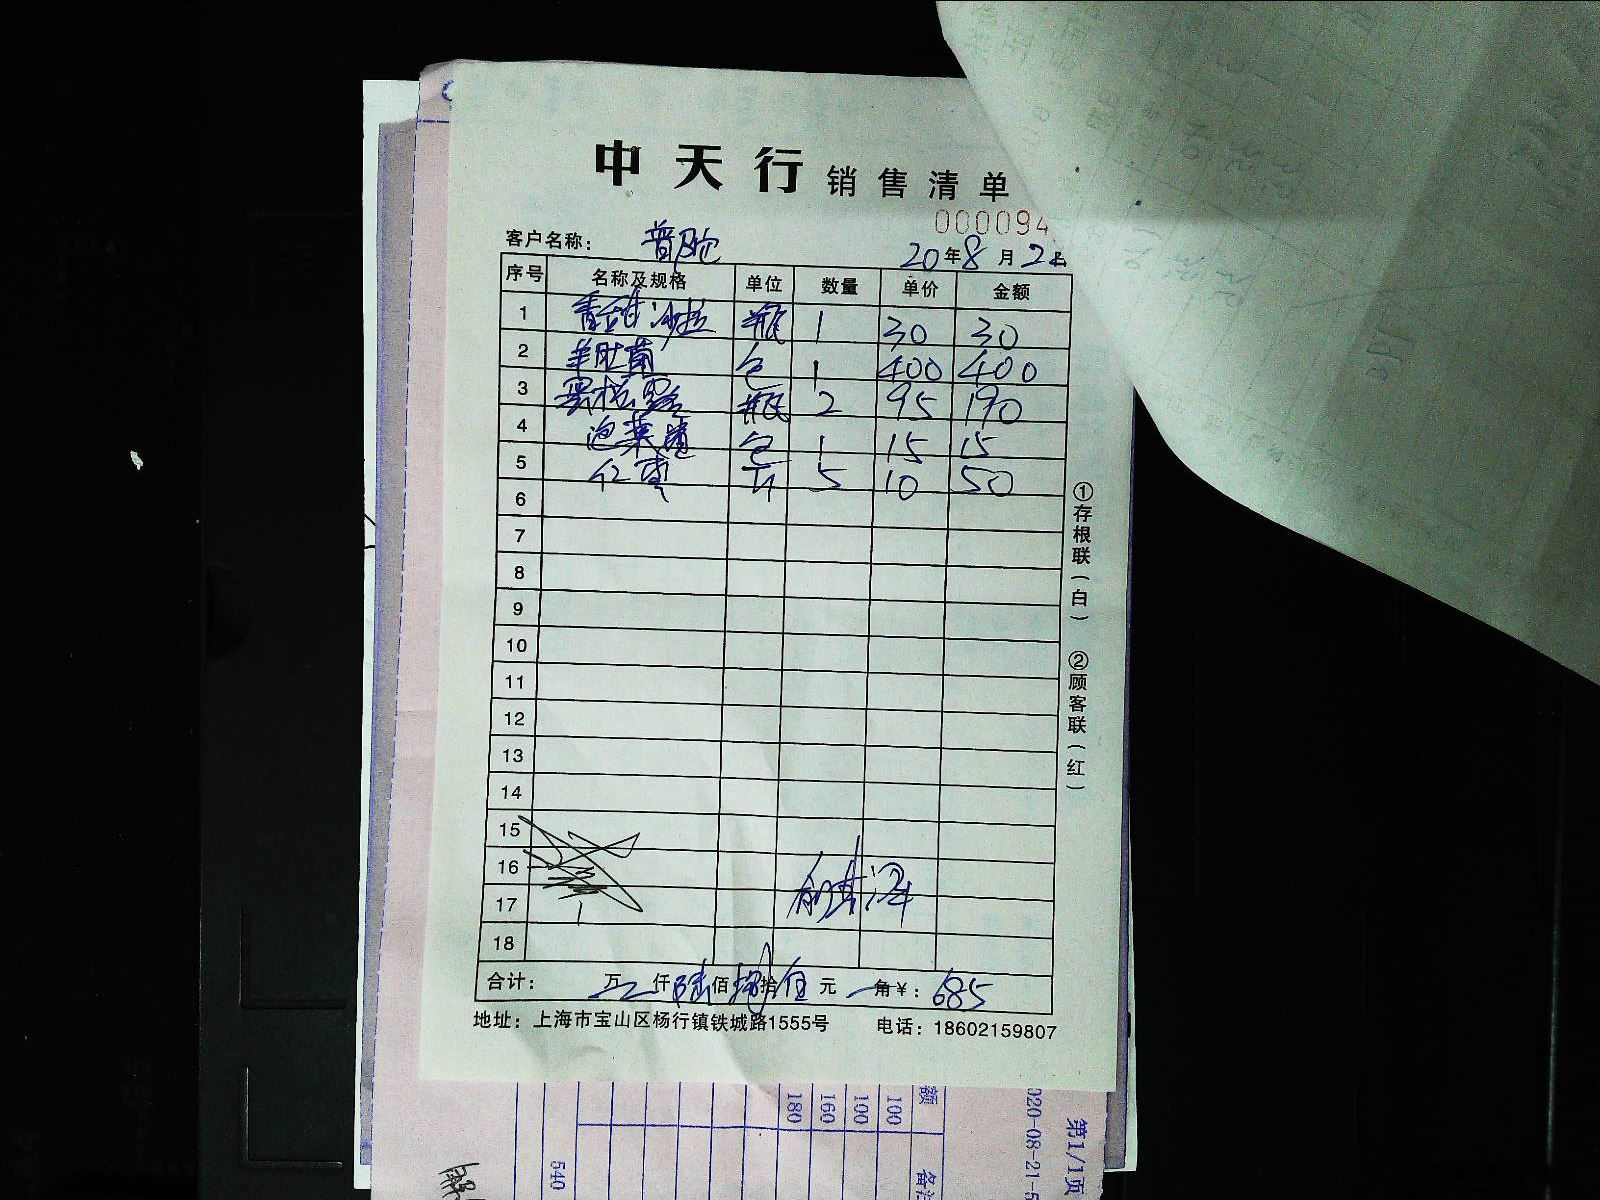 中天行 销售清单
000094
客户名称： 普陀 20年8月2
序号 名称及规格 单位 数量 单价 金额
1 香甜沙拉 瓶 1 30 30
2 羊肚菌 包 1 400 400
3 黑松露 瓶 2 95 190
4 泡菜 包 1 15 15
5 红枣 斤 5 10 50
6
7
8
9
10
11
12
13
14
15
16
17
18
合计： 万 仟 陆佰 捌拾 伍元 角￥：685
地址：上海市宝山区杨行镇铁城路1555号 电话：18602159807
①存根联（白） ②顾客联（红）
额 100 100 160 180
540
020-08-21-5
第1/1页